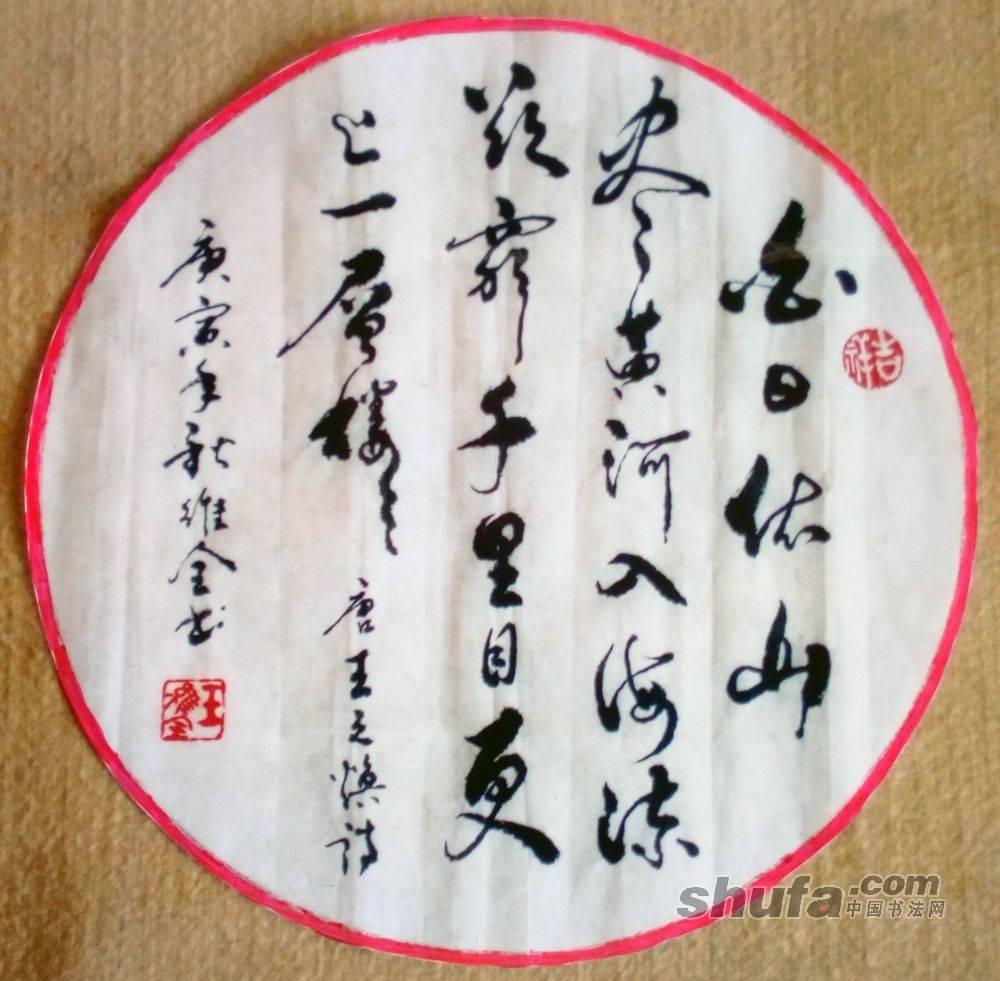 白日依山
尽黄河入海流
欲穷千里目更
上一层楼
唐王之焕诗
庚寅年秋维全书
吉祥
王维全
shufa.com
中国书法网